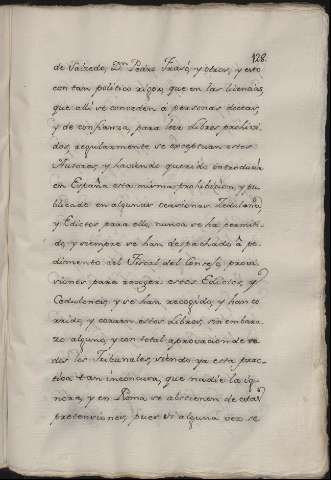 128.
de Salzedo, Dn. Pedro Frasó, y otros, y esto
con tan politico rigor, que en las licencias,
que allí se conceden à personas doctas,
y de confianza, para leer libros prohivi-
dos, regularmente se exceptuan estos
Autores, y haviendo querido introducir
en España esta misma prohibicion, y pu-
blicado en algunas ocasiones Cedulones,
y Edictos para ello, nunca se ha permiti-
do, y siempre se han despachado à pe-
dimento del Fiscal del Consejo, provi-
siones para recoger estos Edictos, y
Cedulones, y se han recogido, y han co-
rrido, y corren estos libros, sin embara-
zo alguno, y con total aprovacion de to-
dos los Tribunales, siendo ya esta prac-
tica tan inconcusa, que nadie la ig-
nora, y en Roma se abstienen de estas
pretensiones, pues si alguna vez se